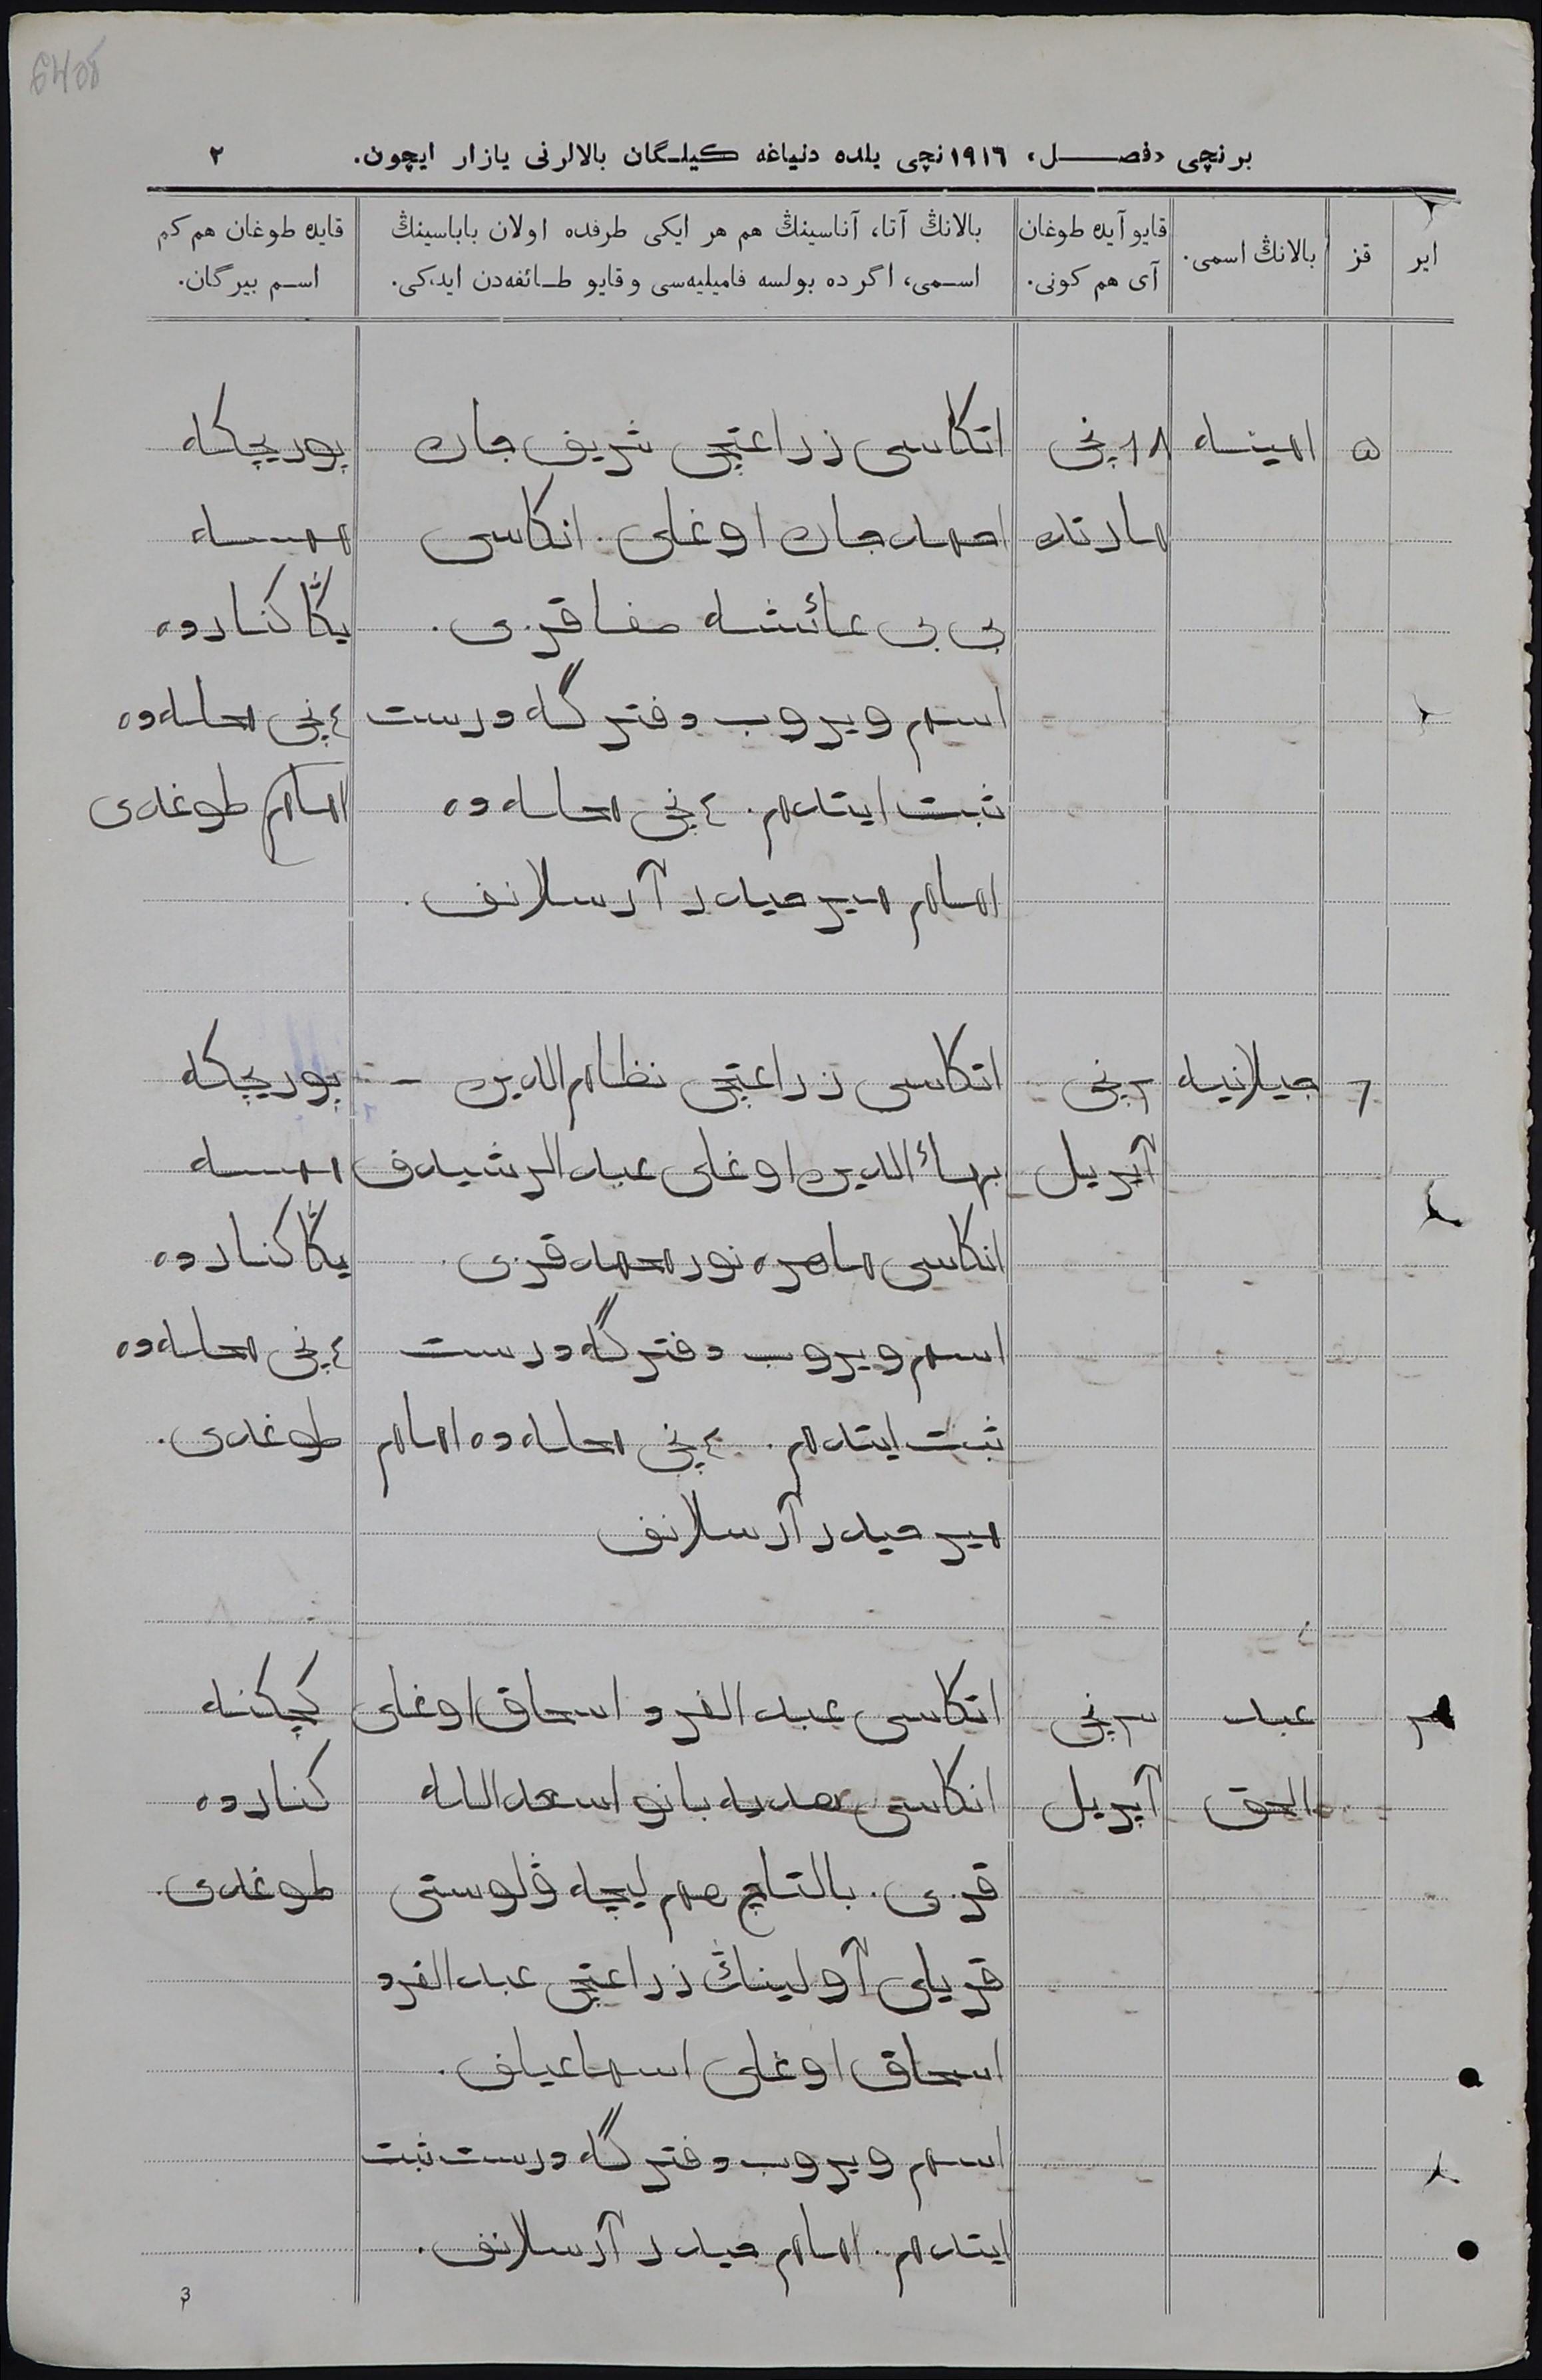 برنچی «فصل» ١٩١٦نچی یلده دنیاغه کیلـگان بالالرنی یازار ایچون. ٢
ایر
قز
بالانڭ اسمی.
قایو آیده طوغان
آی هم کونی.
بالانڭ آتا، آناسینڭ هم هر ایکی طرفده اولان باباسینڭ
اسـمی، اگرده بولسه فامیلیه‌سی و قایو طـائفه‌دن ایدکی.
قایده طوغان هم کم
اسـم بیرگان.
۵ امینه ١٨ نچی اتکاسی زراعتچی شریف جان
مارتده احمد جان اوغلی. انکاسی
بی بی عائشه صفا قزی.
اسم ویروب دفترگه درست
ثبت ایتدم. ٤ نچی محله ده
امام میر حیدر آرسلانف.
ینگا کنارده
٤ نچی محله ده
امام طوغدی
٦ جیلانیه ٢ نچی اتکاسی زراعتچی نظام الدین
آپریل بهاءالدین اوغلی عبدالرشیدف
انکاسی ماهره نور محمد قزی.
اسم ویروب دفترگه درست
ثبت ایتدم. ٤ نچی محله ده امام
میر حیدر آرسلانف
ینگا کنارده
٤ نچی محله ده
طوغدی.
عبد ٣ نچی اتکاسی عبد الفرد اسحاق اوغلی
الحق آپریل انکاسی بانو اسعد الله
قزی.
آولینڭ زراعتچی عبد الفرد
اسحاق اوغلی اسماعیلف.
اسم ویروب دفترگه درست ثبت
ایتدم. امام حیدر آرسلانف.
کچکنه
کنارده
طوغدی.